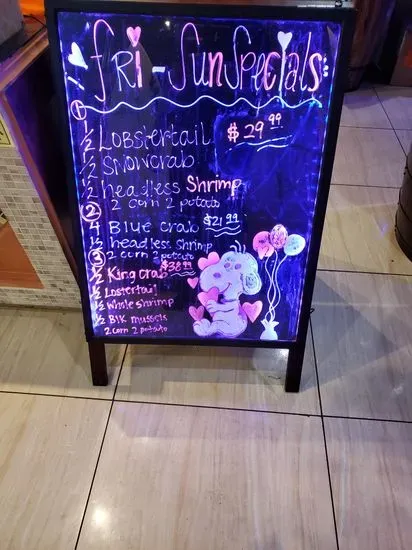 FRI-Sun Specials
1
1/2 LOBSTERTAIL $29.99
1/2 SNOWCRAB
1/2 headless Shrimp
2 corn 2 potato
2 $21.99
4 Blue crab
1/2 headless Shrimp
2 corn 2 potato
3 $38.99
1/2 King Crab
1/2 Lostertail
1/2 Whole shrimp
1/2 Blk mussels
2 corn 2 potato